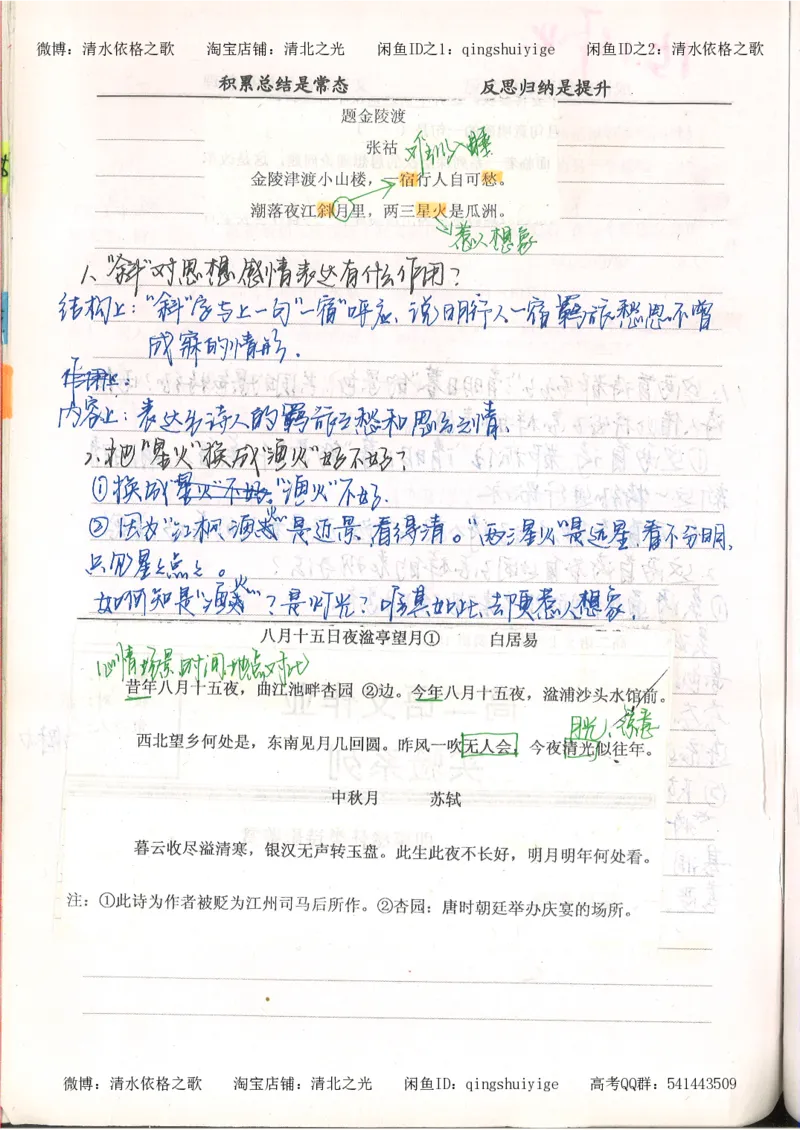 微博：清水依格之歌 淘宝店铺：清北之光 闲鱼ID之1：qingshuiyige 闲鱼ID之2：清水依格之歌
积累总结是常态 反思归纳是提升
题金陵渡
张祜 难以入睡
金陵津渡小山楼，一宿行人自可愁。
潮落夜江斜月里，两三星火是瓜洲。
惹人想象
1、"斜"对思想感情表达有什么作用？
结构上："斜"字与上一句"一宿"呼应，说明行人一宿羁旅愁思不曾
成寐的情形．
作用上：
内容上：表达出诗人的羁旅之愁和思念之情．
2、把"星火"换成"渔火"好不好？
①换成"星火"不好．"渔火"不好．
②因为"江枫渔火"是近景，看得清。"两三星火"是远星，看不分明，
只如星星点点。
如何知是"渔火"？是灯光？唯其如此，去更惹人想象．
八月十五日夜湓亭望月① 白居易
(心情场景时间地点对比)
昔年八月十五夜，曲江池畔杏园 ②边。今年八月十五夜，湓浦沙头水馆前。
月光、
西北望乡何处是，东南见月几回圆。昨风一吹无人会，今夜清光似往年。
中秋月 苏轼
暮云收尽溢清寒，银汉无声转玉盘。此生此夜不长好，明月明年何处看。
注：①此诗为作者被贬为江州司马后所作。②杏园：唐时朝廷举办庆宴的场所。
微博：清水依格之歌 淘宝店铺：清北之光 闲鱼ID：qingshuiyige 高考QQ群：541443509